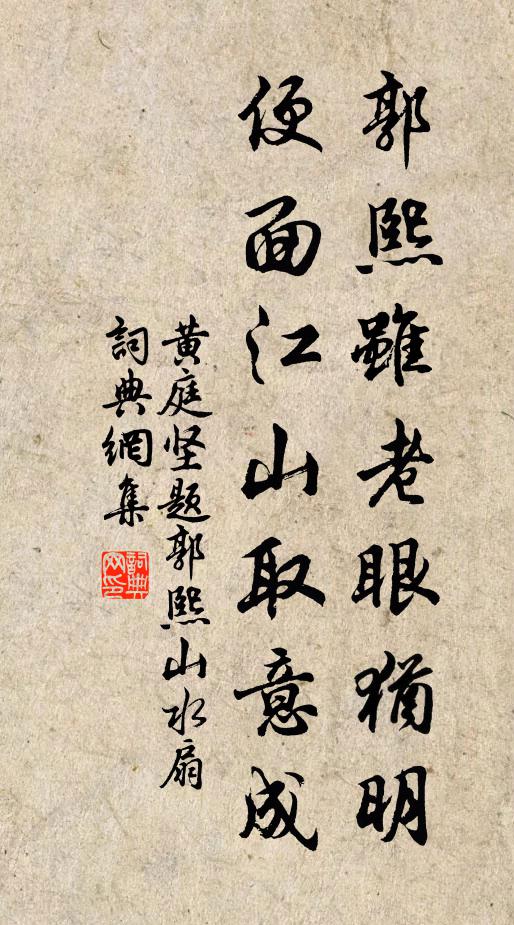 郭熙雖老眼猶明
便面江山取意成
黄庭坚题郭熙山水扇
詞典網集
詞典网印